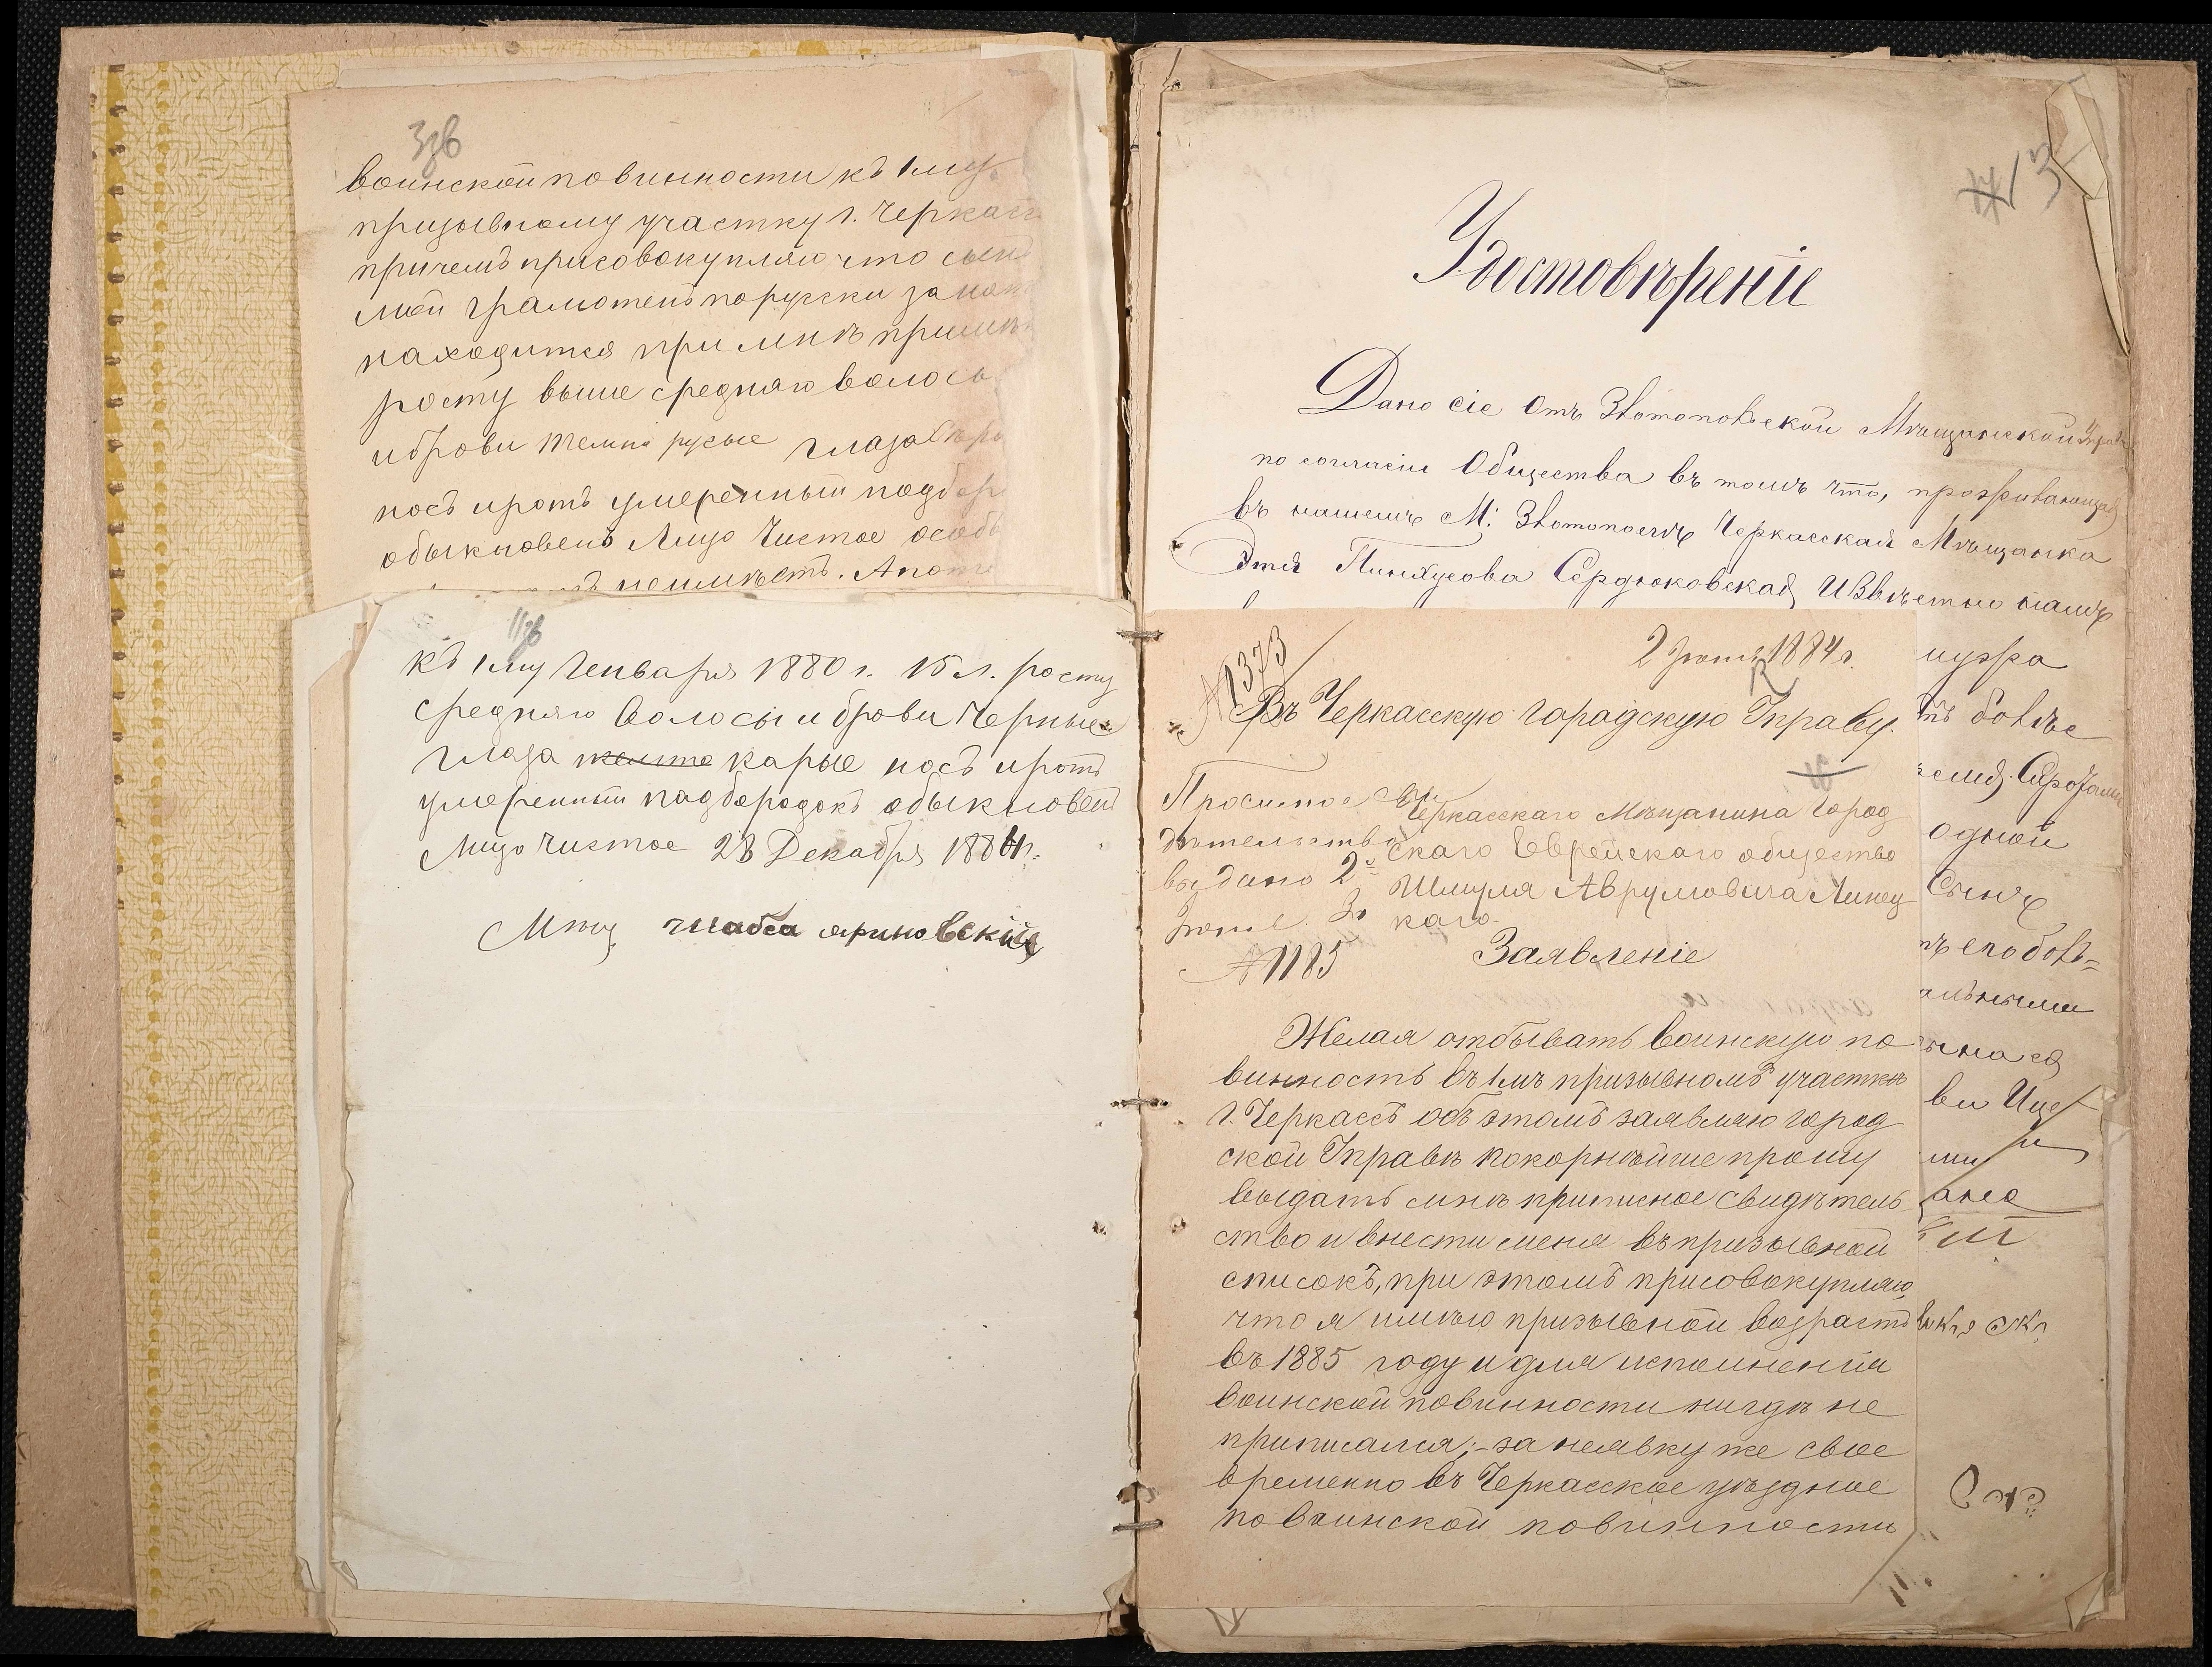 3зв
воинской повинности къ 1му
призывному участку г. Черкасс
причемъ присовокупляю что сынъ
мой грамотенъ порусски
находится при мнѣ
росту выше средняго волосы
и брови темно русые глаза
носъ и ротъ умеренный подбор
обыкновенъ Лицо Чистое особ
неимѣетъ.
11зв
къ 1му Генваря 1880 г. 15 л. росту
средняго Волосы и брови Черные
глаза карые носъ и ротъ
умеренный падбородокъ обыкновен
Лицо Чистое 28 Декабря 1884 г.
Мѣщ
3
Удостовѣреніе
Дано сіе Отъ Златопольской Мѣщанской Управ
по согласію Общества въ томъ что, проживающая
въ нашемъ М: Златополѣ Черкасская Мѣщанка
Этя Пинхусова Сердюковская Извѣстно намъ
мужа
тъ болѣе
одной
Сынъ
ви Ице
№ 1373
2 Іюня 1884 г.
Въ Черкасскую Гарадскую Управу.
Просимое сви
дѣтельство
выдано 2го
Іюня
№ 1185
Черкасскаго Мѣщанина Город
скаго Еврейскаго общества
Шмуля Аврумовича Линец
каго.
Заявленіе
Желая отбывать воинскую по
винность въ 1мъ призывномъ участкѣ
г. Черкассъ объ этомъ заявляю город
ской Управѣ покорнѣйше прошу
выдать мнѣ приписное свидѣтель
ство и внести меня въ призывной
списокъ, при этомъ присовокупляю,
что я имѣю призывной возрастъ
въ 1885 году и для исполненія
воинской повинности нигдѣ не
приписался; - за неявку же свое
временно въ Черкасское уѣздное
по воинской повинности